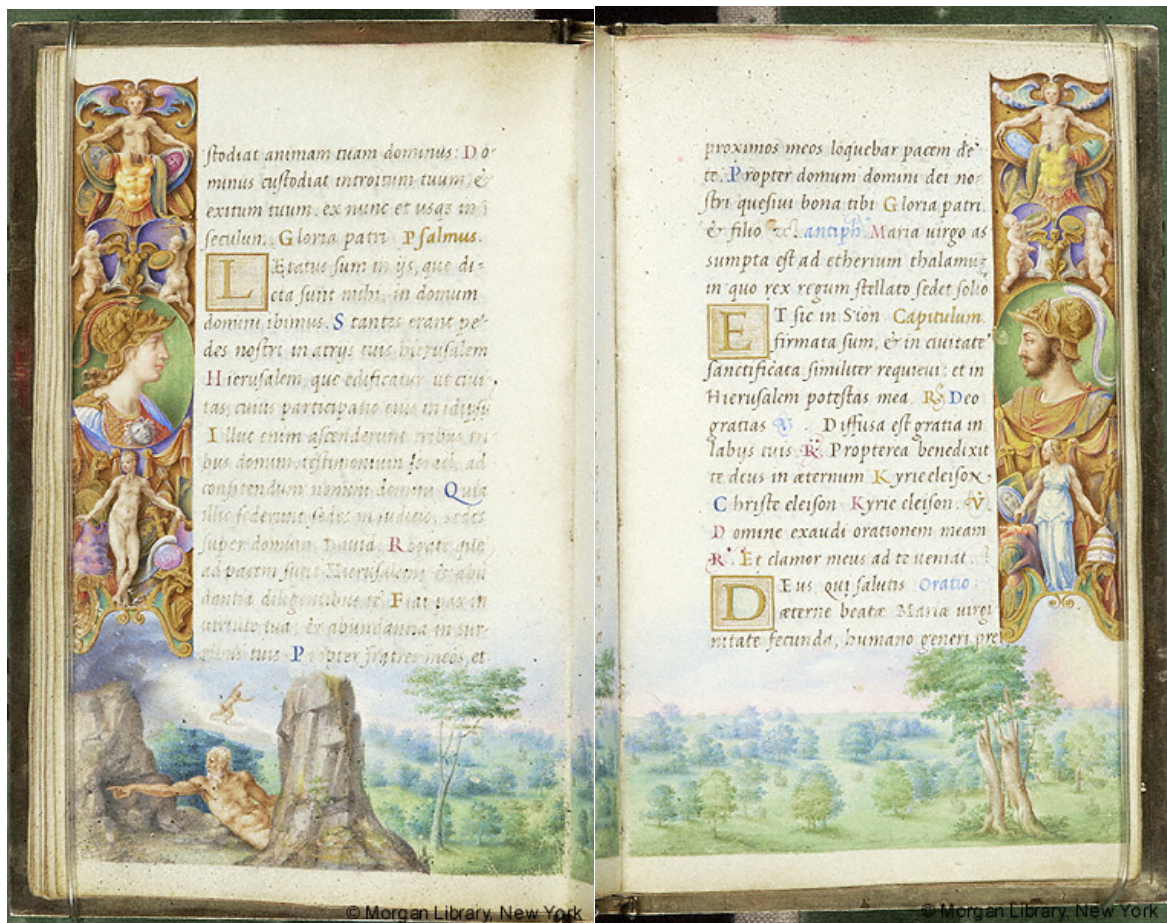 ſtodiat animam tuam dominus: Do-
minus cuſtodiat introitum tuum, &
exitum tuum, ex nunc et uſqȝ in
ſeculun. Gloria patri Pſalmus.
LÆtatus ſum in ijs, que di-
cta ſunt mihi, in domum
domini ibimus. Stantes erant pe-
des noſtri in atrijs tuis hieruſalem
Hieruſalem, que edificatur ut ciui-
tas, cuius participatio eius in idipſũ
Illuc enim aſcenderunt tribus, tri-
bus domini, teſtimonium Iſrael, ad
confitendum nomini domini Quia
illic ſederunt ſedes in iudicio, ſedes
ſuper domum Dauid. Rogate que
ad pacem ſunt Hieruſalem & abũ
dantia diligentibus te. Fiat pax in
uirtute tua, & abundantia in tur-
tuis Propter fratres meos, et
proximos meos loquebar pacem de
te. Propter domum domini dei no-
ſtri queſiui bona tibi Gloria patri.
& filio antiph. Maria uirgo as
sumpta eſt ad etherium thalamuȝ
in quo rex regum ſtellato ſedet ſolio
ET ſic in Sion Capitulum.
firmata ſum, & in ciuitate
ſanctificata ſimiliter requieui: et in
Hieruſalem poteſtas mea. R. Deo
gratias V. Diffusa eſt gratia in
labijs tuis R. Propterea benedixit
te deus in æternum Kyrie eleiſon,
Chriſte eleiſon. Kyrie eleiſon. V
Domine exaudi orationem meam
R. Et clamor meus ad te ueniat.
DEus qui ſalutis Oratio
æterne beatæ Mariæ uirgi
nitate fecunda, humano generi pre
© Morgan Library, New York
© Morgan Library, New York